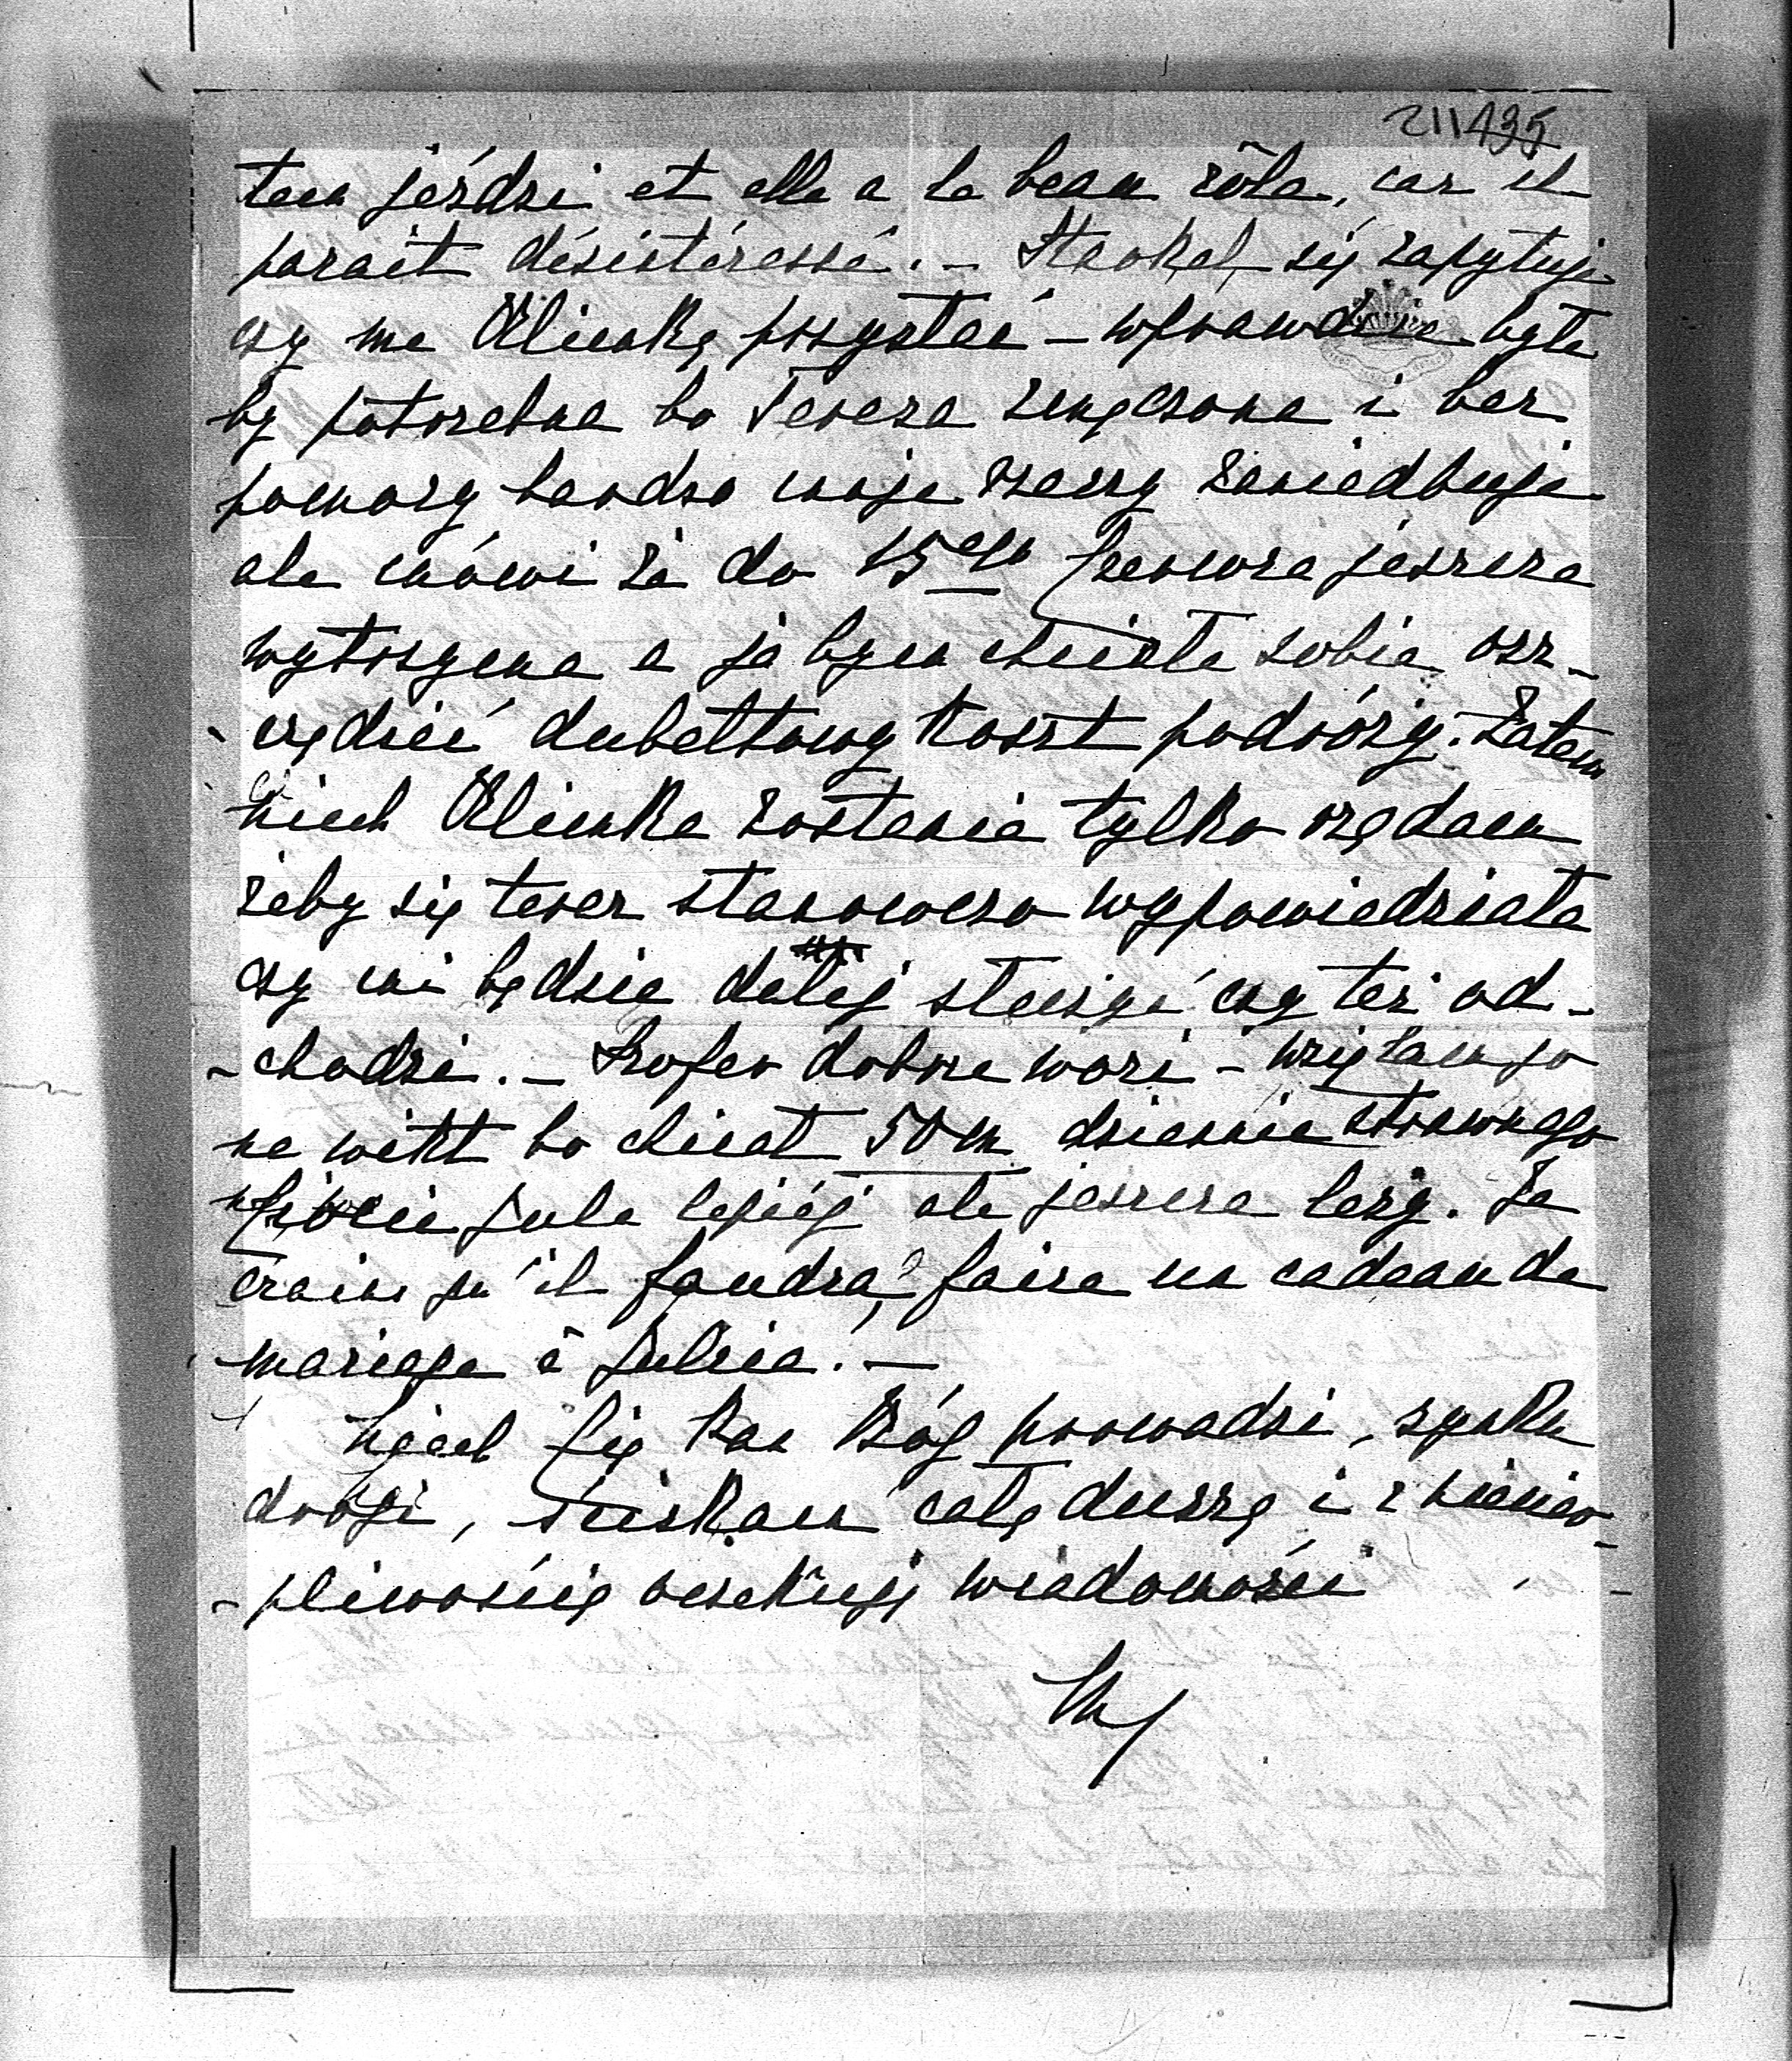 211435
tem jeździ et elle a le beau rôle, car il
parait désintéressé. – Stackel się zapytuje
czy ma Klimkę przysłać – wprawdzie była
by potrzebna bo Teresa zmęczona i bez
pomocy bardzo moje rzeczy zaniedbuje
ale mówi że do 15go Czerwca jeszcze
wytrzyma a ja bym chciała sobie osz-
-czędzić dubeltowy koszt podróży. Zatem
niech Klimka zostanie tylko żądam
żeby się teraz stanowczo wypowiedziała
czy mi będzie dalej służyć czy też od-
-chodzi. – dobrze wozi – wzięłam go
na wikt bo chciał 50 m dziennie strawnego
Jula lepiéj ale jeszcze leży. Je
crains qu'il faudra faire un cadeau de
mariage à Julcia. –
Niech Cię Pan Bóg prowadzi, synku
drogi, ściskam całą duszą i z niecier-
-pliwością oczekuję wiadomości